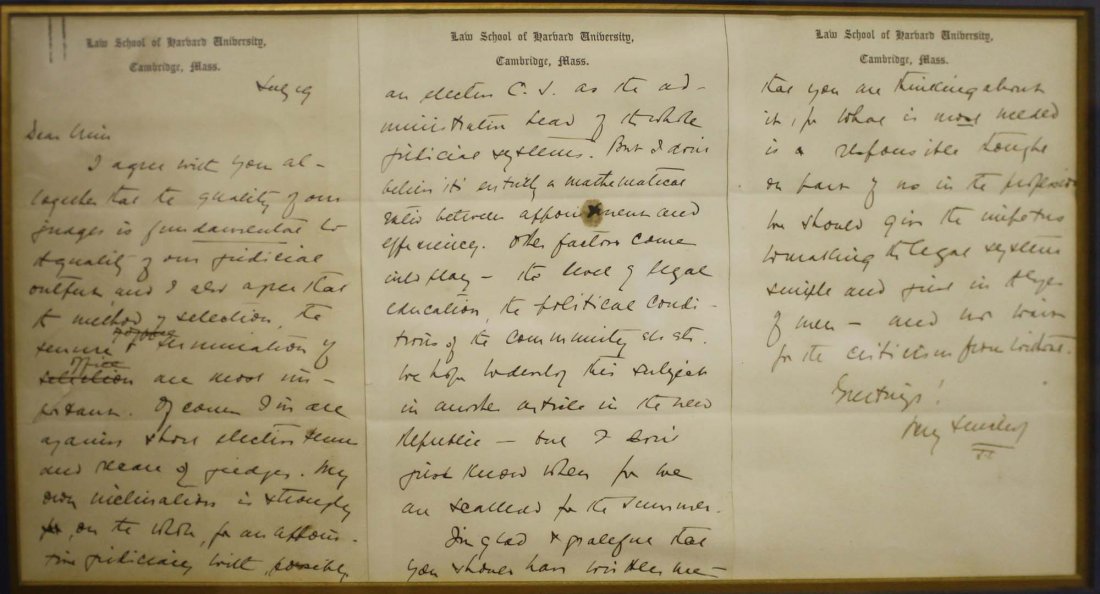 Law School of Harvard University,
Cambridge, Mass.
July 19
Dear
I agree with you al-
together that the quality of our
judges is fundamental to
quality of our judicial
output and I also agree that
the method of selection, the
tenure & termination of
office
selection are most im-
portant. Of course I'm all
against short elective tenure
and recall of judges. My
own inclination is strongly
for, on the whole, for an appoin-
tive judiciary with, possibly
Law School of Harvard University,
Cambridge, Mass.
an elective C. J. as the ad-
ministrative head of the whole
judicial systems. But I don't
believe it's entirely a mathematical
ratio between appointment and
efficiency. Other factors come
into play — the level of legal
education, the political condi-
tions of the community etc etc.
We hope to develop this subject
in another article in the New
Republic — but I don't
just know when for we
are scattered for the summer.
I'm glad & grateful that
you should have written me —
Law School of Harvard University,
Cambridge, Mass.
that you are thinking about
it, for what is most needed
is a responsible thought
on part of us in the profession
We should give the impetus
to making the legal systems
simple and just in the eyes
of men — and not wait
for the criticism from without.
Greetings!
FF